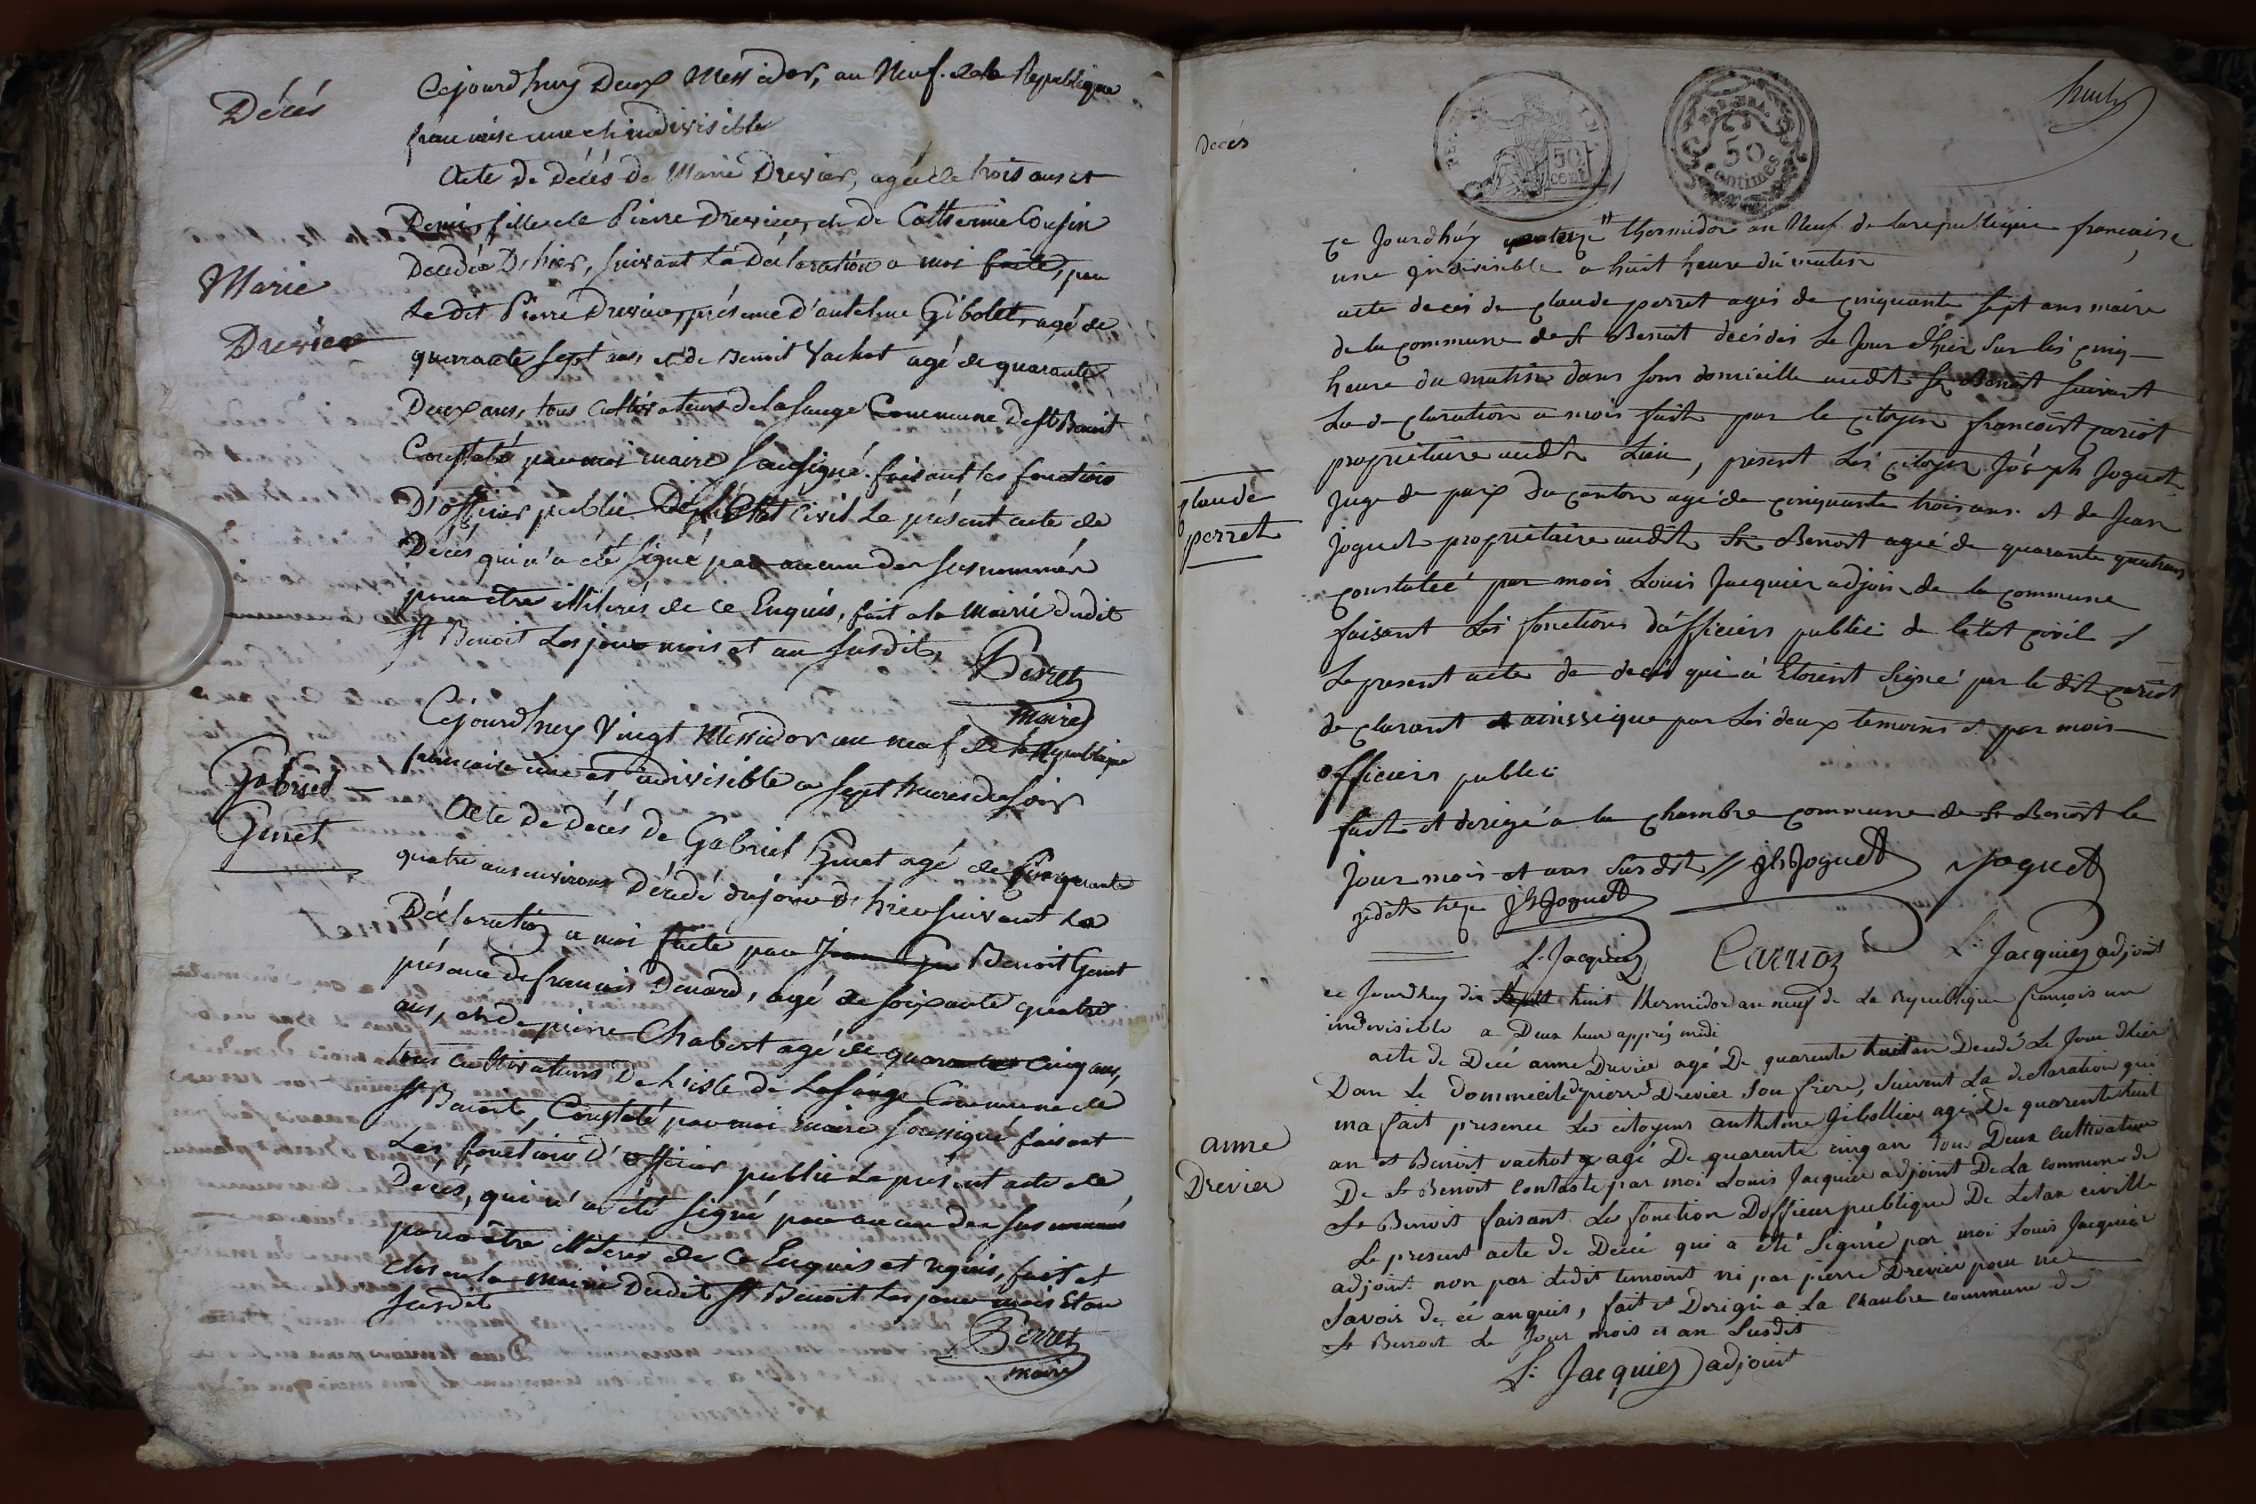 Décés
Cejourdhuy Deux Messidor, an Neuf. de la Republique
francaise une et indivisible
Acte de Décés de Marie Drevier, agée de trois ans et
Demis, fille de Pierre Drevier, et de Catherine Cousin
Décedée D'hier, suivant La Déclaration a moi faite, par
Marie
Drevier
Le dit Pierre Drevier, présence d'antelme Gibolet, agé de
quarante sept ans, et de Benoit Vachot agé de quarante
Deux ans, tous cultivateurs de la Sauge Commune de St Benoit
Constaté par moi maire Sousigné faisant les fonctions
D'officier public De l'Etat Civil Le présent acte de
Décés qui n'a été signé par aucun des susnommés
pour être illiterés de ce Enquis, fait a la Mairie dudit
St Benoit Les jour mois et an susdit,
Perret
maire
Gabriel
Ginet
Cejourdhuy Vingt Messidor an neuf de la Republique
francaise une et indivisible a sept heures du soir
Acte de Décés de Gabriel Ginet agé de Cinquante
quatre ans environs Décedé du jour D'hier suivant La
Déclaration a moi faite par Benoit Ginet
présence de francois Donard, agé de soixante quatre
ans, et de pierre Chabert agé de quarante cinq ans,
tous cultivateurs De Lisle de La Sauge Commune de
St Benoit, Constaté par moi maire soussigné faisant
Les fonctions D'officier public Le présent acte de
Décés, qui n'a été signé par aucun des susnommés
pour être illiterés de ce Enquis et requis, fait et
clos en la mairie Dudit St Benoit Les jour mois Et an
susdit
Perret
maire
huit
50
cent
50
Centimes
Décés
Ce Jourdhuy thermidor an Neuf de la republique francaise
une indivisible a huit heure du matin
acte deces de Claude perret agés de cinquante sept ans maire
de la commune de St Benoit décédés Le Jour d'hier sur les cinq
heure du matin dans sons domicille audit St Benoit suivant
La declaration a mois fait par le citoyen francoist carriot
Claude
perret
propriétaire audit Lieu, present Les citoyen Joseph Joguet
Juge de paix du canton agé de cinquante trois ans. et de Jean
Joguet propriétaire audit St Benoit agié de quarante quatre ans
constateé par mois Louis Jacquier adjoin de la commune
faisant Les fonctions d'officiérs publié de l'état civil
Le present acte de decés qui a Etoient signé par le dit cariot
declarant et ainssique par Les deux temoins et par mois
officiers public
fait et derigé a la chambre commune de St Benoit le
Jour mois et ans susdit // Jh Joguet Joguet
Jh Joguet
L. Jacquier Carrioz L. Jacquier adjoint
ce Jourdhuy dix huit thermidor an neuf de La Republique francois un
indivisible a Deux heur apprés midi
acte de Décé anne Drevier agé De quarente huit an Décédé Le Jour dhier
Dan Le dommicile de pierre Drevier son frere, suivent La declaration qui
ma fait presence Les citoyens anthelme Gibollier agé De quarente huit
anne
Drevier
an et Benoit vachot agé De quarente cinq an tous Deux cultivateur
De St Benoit Constaté par moi Louis Jacquier adjoint De La commune de
St Benoit faisant Les fonction Dofficier publique De Letat civille
Le present acte de Décé qui a été Signié par moi Louis Jacquier
adjoint non par Ledit temoint ni par pierre Drevier pour ne
Savoir De ce anquis, fait et Derigé a La Chanbre commune de
St Benoit Le Jour mois et an Susdit
L. Jacquier adjoint